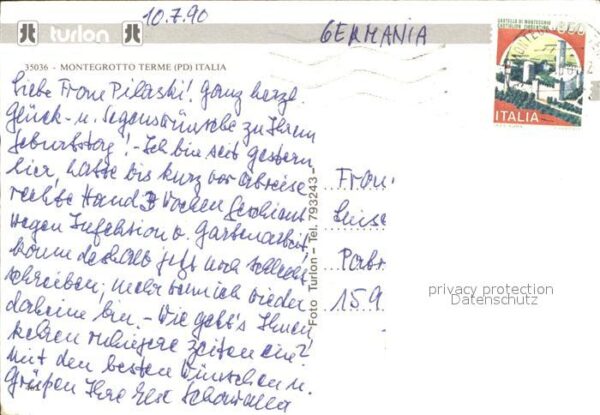 10.7.90
GERMANIA
turlon
CASTELLO DI MONTECCHIO
CASTIGLION FIORENTINO
ITALIA
35036 - MONTEGROTTO TERME (PD) ITALIA
Liebe Frau Pilaski! Ganz herzl.
Glück- u. Segenswünsche zu Ihrem
Geburtstag! - Ich bin seit gestern
hier, hatte bis kurz vor Abreise
rechte Hand 3 Wochen geschient
wegen Infektion v. Gartenarbeit,
kann deshalb jetzt noch schlecht
schreiben; mehr wenn ich wieder
daheime bin. - Wie geht's Ihnen
kehren ruhigere Zeiten ein?
Mit den besten Wünschen u.
Grüßen Ihre
Foto Turlon - Tel. 793243 -
Frau
Luise
Pabs
159
privacy protection
Datenschutz